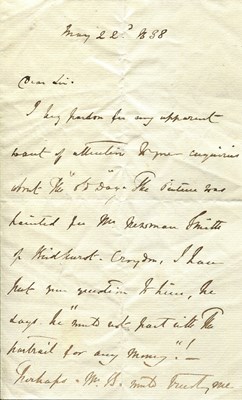 May 22d 1838
Dear Sir.
I beg pardon for my apparent
want of attention to your enquiries
about the "old Dog" The Picture was
painted for Mr Newman Smith
of Windhurst - Croydon, I have
put your question to him, he
says he "would not part with the
portrait for any money"! -
Perhaps Mr B. would trust me